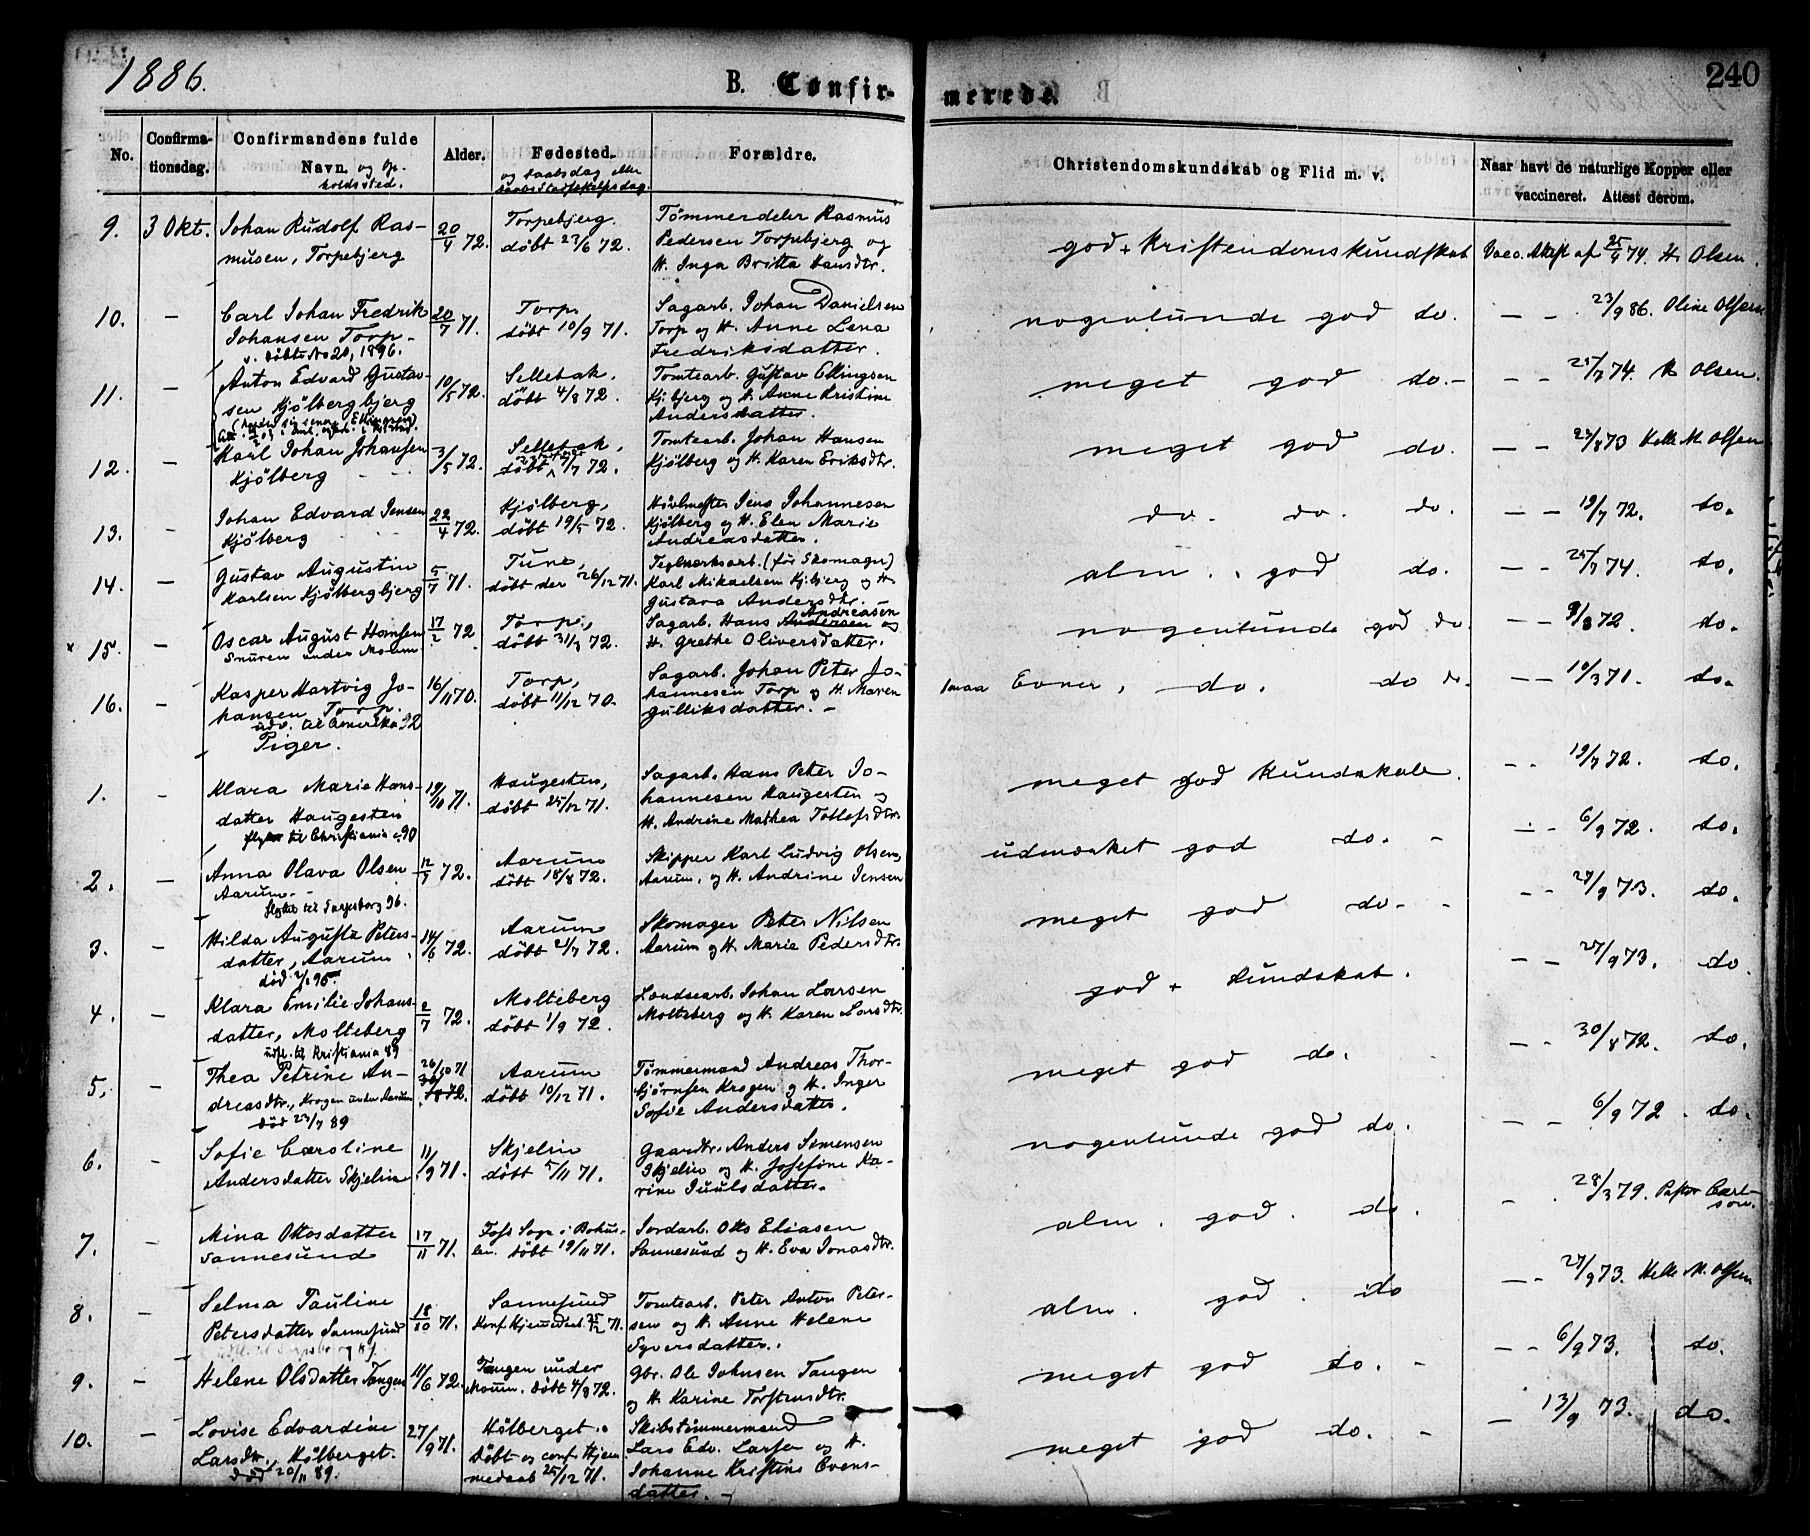 1886.
B. Confir-
merede.
240
No.
Confirma-
tionsdag.
Confirmandens fulde
Navn. og Op-
holdssted.
Alder.
Fødested.
og Daabsdag eller
Forældre.
Christendomskundskab og Flid m. v.
Naar havt de naturlige Kopper eller
vaccineret. Attest derom.
9. 3 Okt. Johan Rudolf Ras-
musen, Torpebjerg
20/4 72.
Torpebjerg.
døbt 23/6 72.
Tømmerdeler Rasmus
Pedersen Torpebjerg og
H. Inga Britta Hansdtr.
god + Kristendomskundskab
Vacc. Attest af 25/9 74. H. Olsen.
10. — Carl Johan Fredrik
Johansen Torp
Døbte No 20, 1896.
20/7 71.
Torp
døbt 10/9 71.
Sagarb. Johan Danielsen
Torp og H. Anne Lena
Fredriksdatter.
nogenlunde god do.
— — 23/9 86. Oline Olsen
11. — Anton Edvard Gustav-
sen Kjølbergbjerg
10/5 72.
Sellebak.
døbt 4/8 72.
Tomtearb. Gustav Ellingsen
Kj.bjerg og H. Anne Kristine
Andersdatter.
meget god do. -
— — 25/7 74. H. Olsen.
12. — Karl Johan Johansen
Kjølberg
3/5 72.
Sellebak,
døbt 7/7 72.
Tomtearb. Johan Hansen
Kjølberg og H. Karen Eriksdtr.
meget god do.
— — 27/8 73 Helle M. Olsen
13. Johan Edvard Jensen
Kjølberg
22/4 72.
Kjølberg,
døbt 19/5 72.
Høvlmester Jens Johannesen
Kjølberg og H. Elen Marie
Andreasdatter.
do. do. do.
— — 19/7 72. do.
14. — Gustav Augustin
Karlsen Kjølbergbjerg
5/7 71.
Tune,
døbt der 26/12 71.
Teglverksarb. (før Skomager)
Karl Mikaelsen Kj.bjerg og H.
Gustava Andersdtr.
alm. god do.
— — 25/7 74. do.
x 15. — Oscar August Hansen
Snuren under Moum
17/2 72
Torp,
døbt 31/3 72.
Andreasen
Sagarb. Hans Andersen og
H. Grethe Oliversdatter.
nogenlunde god do.
— — 9/8 72. do.
16. — Kasper Hartvig Jo-
hansen Torp.
udv. til Amerika 92
16/11 70.
Torp,
døbt 11/12 70.
Sagarb. Johan Peter Jo-
hannesen Torp og H. Maren
Gulliksdatter. -
smaa Evner, do. do do.
— — 10/3 71. do.
Piger.
1. — Klara Marie Hans-
datter Haugesten
til Christiania 90
19/10 71.
Haugesten,
døbt 25/12 71.
Sagarb. Hans Peter Jo-
hannesen Haugesten og
H. Andrine Mathea Tollefsdtr.
meget god Kundskab.
— — 19/7 72. do.
2. — Anna Olava Olsen
Aarum.
flyttet til Sarpsborg 96.
12/7 72.
Aarum
døbt 18/8 72.
Skipper Karl Ludvig Olsen,
Aarum, og H. Andrine Jensen
udmærket god do. -
— — 6/9 72. do.
3. — Hilda Augusta Peters-
datter, Aarum
14/6 72.
Aarum
døbt 21/7 72.
Skomager Peter Nilsen
Aarum og H. Marie Pedersdtr.
meget god do. -
— — 27/9 73. do.
4. — Klara Emilie Johans-
datter, Molteberg
udfl. til Kristiania 89
2/7 72.
Molteberg
døbt 1/9 72.
Landsarb. Johan Larsen
Molteberg og H. Karen Larsdtr.
god + Kundskab.
— — 27/9 73. do.
5. — Thea Petrine An-
dreasdtr., Krogen under Aarum
død 23/7 89
26/10 71
Aarum
døbt 10/12 71.
Tømmermand Andreas Thor-
bjørnsen Krogen og H. Inger
Sofie Andersdatter.
meget god do.
— — 30/8 72. do.
6. — Sofie Caroline
Andersdatter Skjelin
11/9 71.
Skjelin
døbt 5/11 71.
Gaardbr. Anders Simensen
Skjelin og H. Josefine Ka-
rine Juulsdatter.
nogenlunde god do.
— — 6/9 72. do.
7. — Mina Ottosdatter
Sannesund
17/11 71.
Foss Sogn i Bohus-
len. Døbt 19/11 71.
Jordarb. Otto Eliasen
Sannesund og H. Eva Jonasdtr.
alm. god. do.
— 28/3 79. Pastor Carl-
son.
8. — Selma Pauline
Petersdatter Sannesund
18/10 71.
Sannesund
Konf. Hjemmedaab 25/12 71.
Tomtearb. Peter Anton Peter-
sen og H. Anne Helene
Syversdatter.
alm. god. do
— — 27/9 73. Helle M. Olsen
9. — Helene Olsdatter Tangen
11/6 72.
Tangen under
Moum. Døbt 4/8 72.
Gbr. Ole Johnsen Tangen
og H. Karine Torstensdtr.
meget god do. -
— — 6/9 73. do.
10. — Lovise Edvardine
Larsdtr., Hølberget.
død 20/11 89.
27/9 71.
Hølberget.
Døbt og conf. Hjem
medaab 25/12 71.
Skibstømmermand
Lars Edv. Larsen og H.
Johanne Kristine Evens-
datter. -
meget god do. -
— 13/9 73. do.